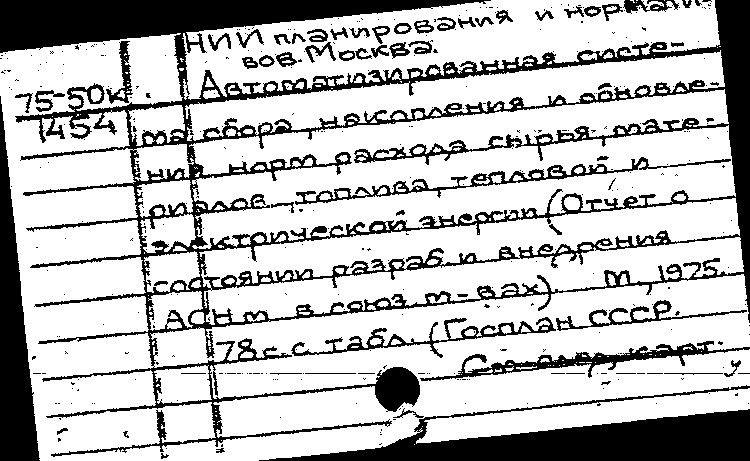 НИИ планирования и нормати-
вов. Москва.
75-50к. Автоматизированная систе-
1454 ма сбора, накопления и обновле-
ния норм расхода сырья, мате-
риалов, топлива, тепловой и
электрической энергии (Отчет о
состоянии разраб. и внедрения
АСНм в союз. м-вах). М., 1975.
78с. с табл. (Госплан СССР.
См. карт.
у